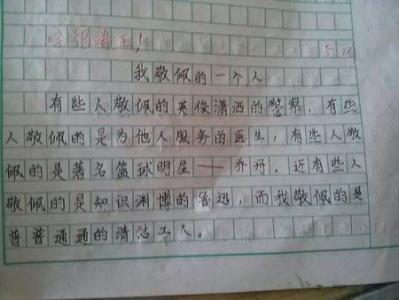 字很端正!
我敬佩的一个人
有些人敬佩的英俊潇洒的警察,有些
人敬佩的是为他人服务的医生,有些人敬
佩的是著名篮球明星——乔丹,还有些人
敬佩的是知识渊博的鲁迅,而我敬佩的是
普普通通的清洁工人。